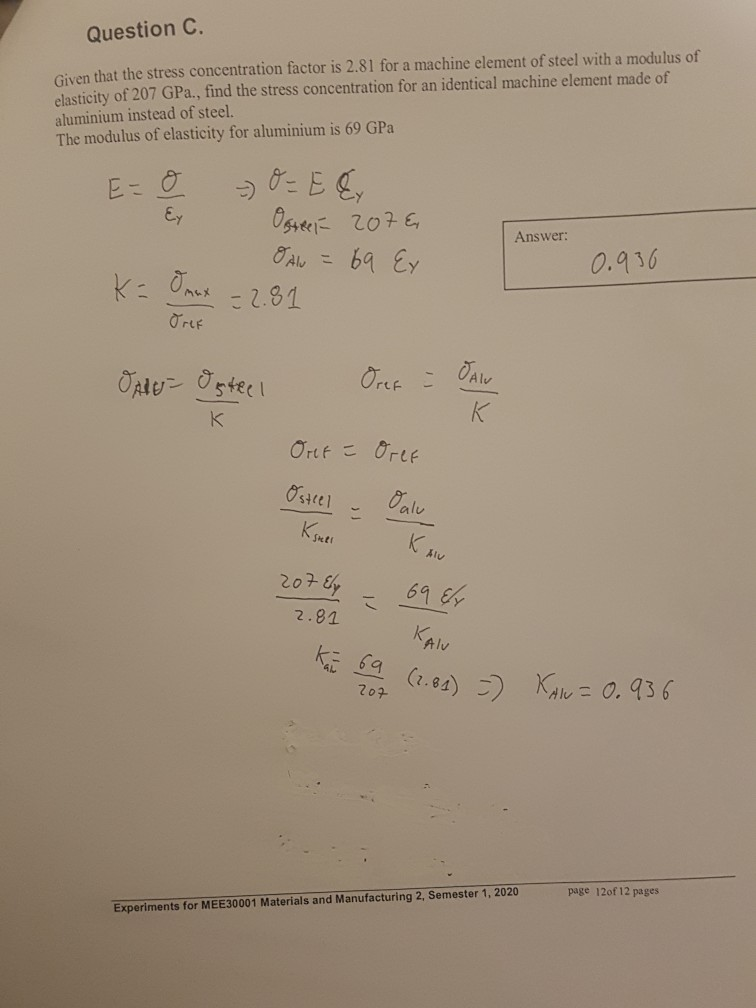 Question C.
Given that the stress concentration factor is 2.81 for a machine element of steel with a modulus of
elasticity of 207 GPa., find the stress concentration for an identical machine element made of
aluminium instead of steel.
The modulus of elasticity for aluminium is 69 GPa
E = σ / εy ⇒ σ = E εy
σsteel = 207 εy
σAlu = 69 εy
Answer:
0.936
K = σmax / σref = 2.81
σAlu = σsteel / K
σref = σAlu / K
σref = σref
σsteel / Ksteel = σalu / KAlu
207 εy / 2.81 = 69 εy / KAlu
KaL = 69 / 207 (2.81) ⇒ KAlu = 0.936
Experiments for MEE30001 Materials and Manufacturing 2, Semester 1, 2020 page 12of 12 pages